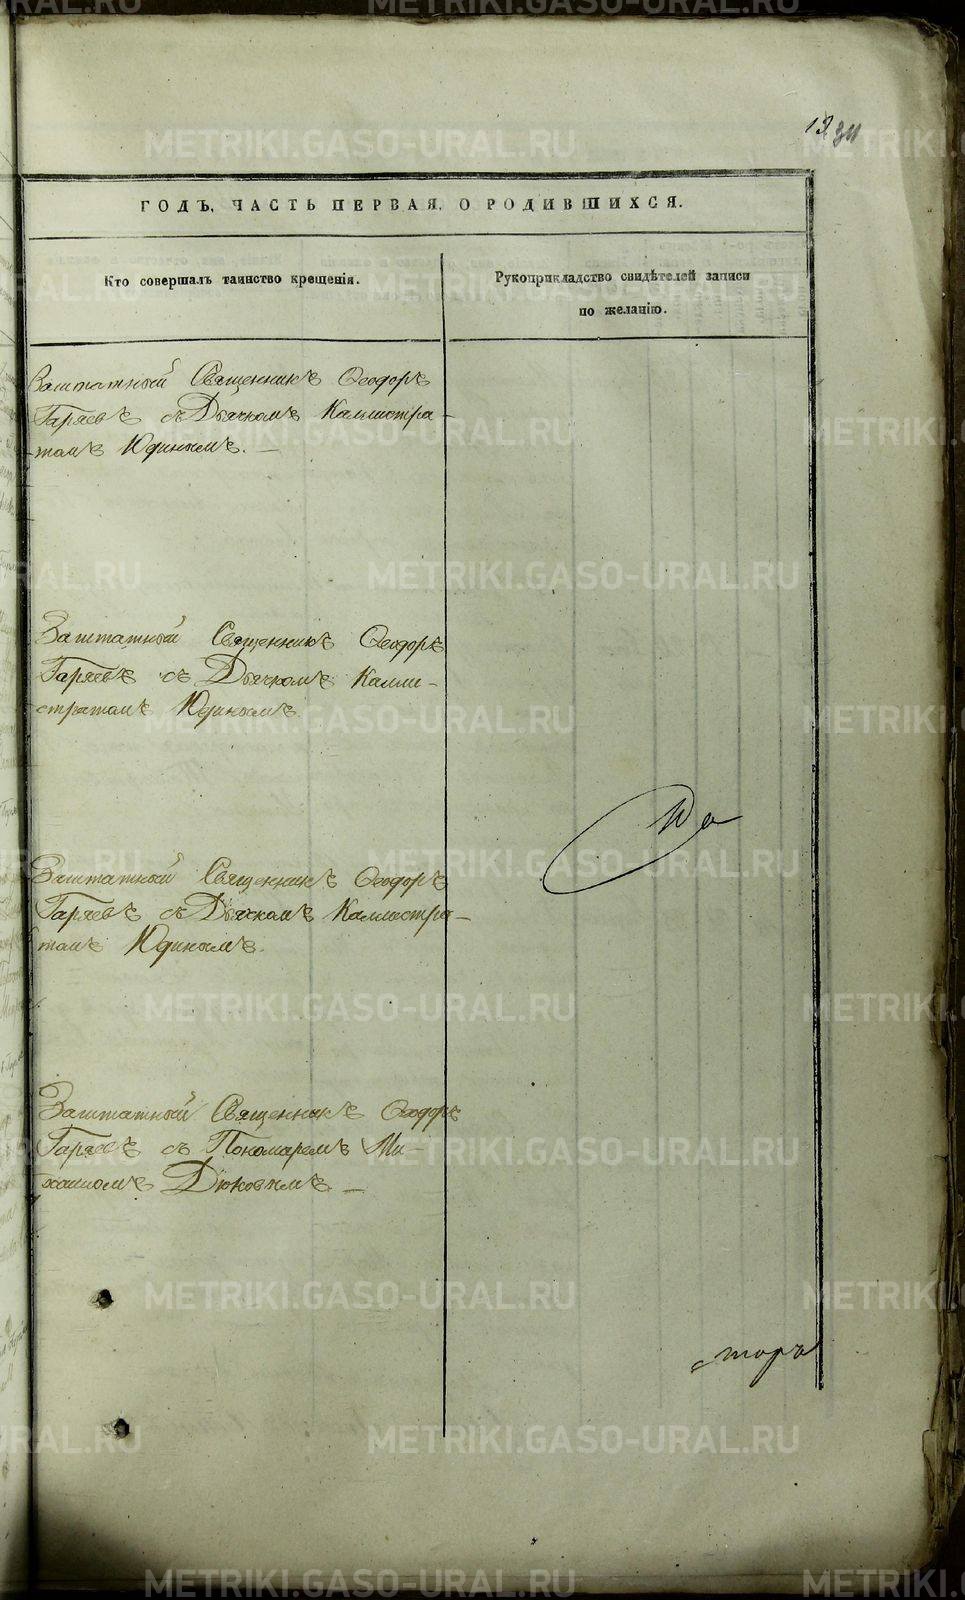 METRIKI.GASO-URAL.RU
13. 34
ГОДЪ, ЧАСТЬ ПЕРВАЯ, О РОДИВШИХСЯ.
Кто совершалъ таинство крещенія.
Рукоприкладство свидѣтелей записи
по желанію.
Заштатный Священникъ Ѳеодоръ
Гаряевъ съ Дьячкомъ Каллистра-
томъ Юдинымъ. —
Заштатный Священникъ Ѳеодоръ
Гаряевъ съ Дьячкомъ Калли-
стратомъ Юдинымъ
Заштатный Священникъ Ѳеодоръ
Гаряевъ съ Дьячкомъ Каллистра-
томъ Юдинымъ.
Заштатный Священникъ Ѳеодоръ
Гаряевъ съ Пономаремъ Ми-
хаиломъ Дюковымъ —